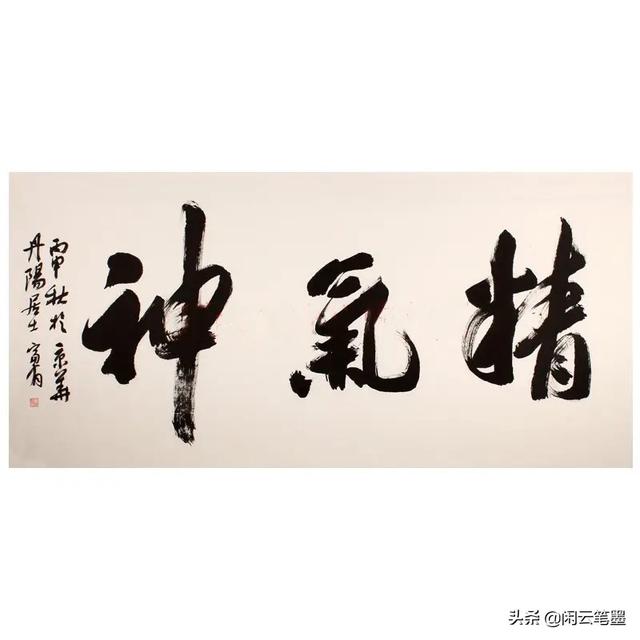 精氣神
丙申秋於京華
丹陽居士
头条 @闲云笔墨